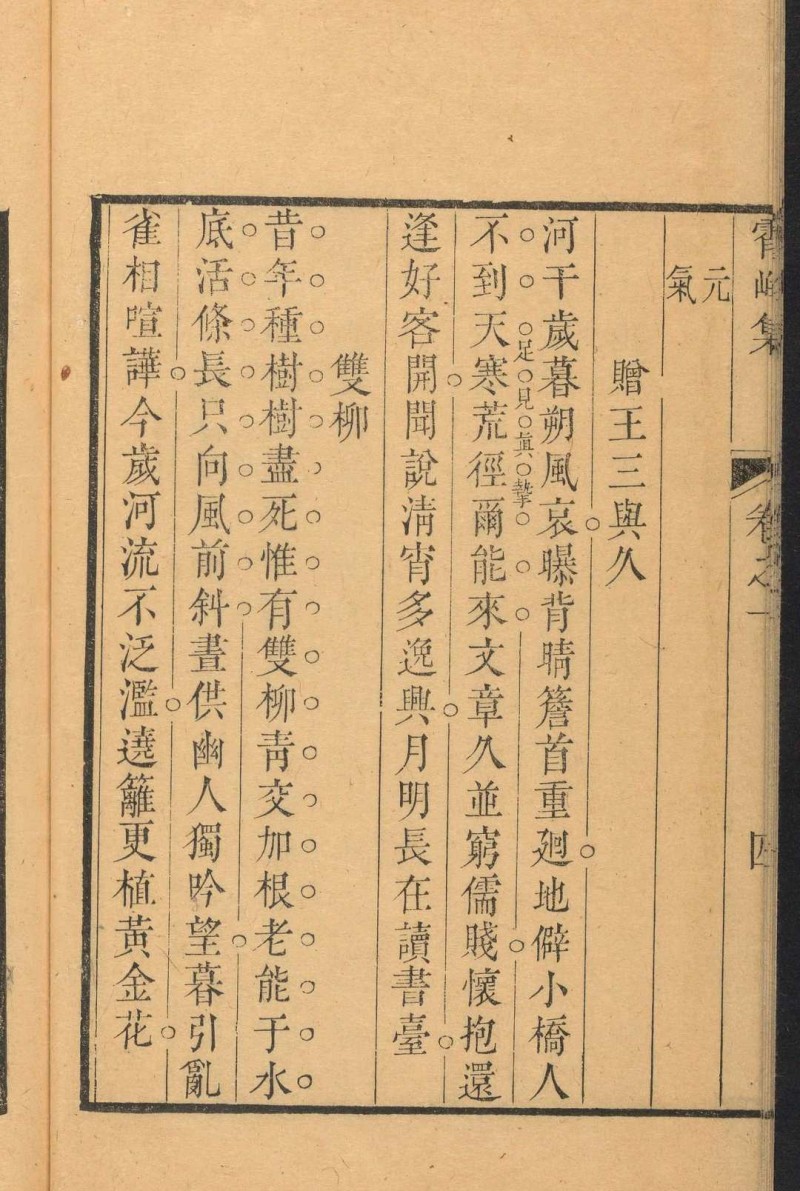 集 卷之一 四
元
氣
贈王三與久
河干歲暮朔風哀曝背晴簷首重廻地僻小橋人
足見眞摯
不到天寒荒徑爾能來文章久並窮儒賤懷抱還
逢好客開聞說淸宵多逸興月明長在讀書臺
雙柳
昔年種樹樹盡死惟有雙柳靑交加根老能于水
底活條長只向風前斜晝供幽人獨吟望暮引亂
雀相喧譁今歲河流不泛濫遶籬更植黃金花